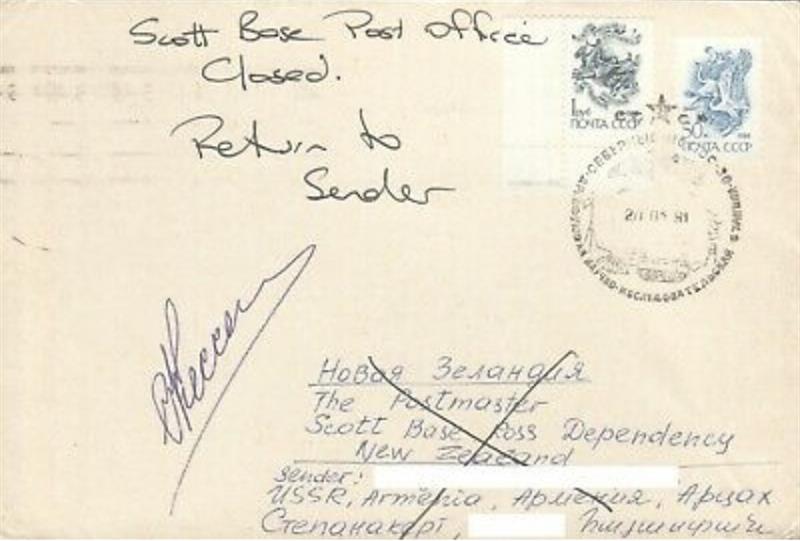 Scott Base Post Office
Closed.
Return to
Sender
1 руб
ПОЧТА СССР
50к
ПОЧТА СССР
20 01 91
НАУЧНО-ИССЛЕДОВАТЕЛЬСКАЯ
Новая Зеландия
The Postmaster
Scott Base Ross Dependency
New Zealand
Sender:
USSR, Armenia, Армения, Арцах
Степанакерт,